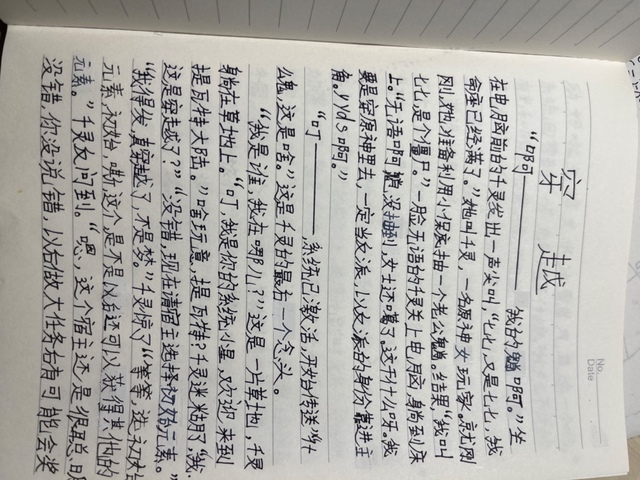 No.
Date
穿越
“啊——————我的魈啊。”坐
在电脑前的千灵发出一声尖叫，“七七，又是七七，我
命座已经满了。”她叫千灵，一名原神女玩家。就刚
刚，她准备利用小保底抽一个老公魈。结果，“我叫
七七，是个僵尸”一脸无语的千灵关上电脑，躺到床
上。“无语啊，魈没抽到，女士还噶了。这干什么呀。我
要是穿原神里去，一定当反派，以反派的身份靠进主
角。yyds啊。”
“叮——————系统已激活，开始传送”“什
么鬼，这是啥。”这是千灵的最后一个念头。
“我是谁，我在哪儿？”这是一片草地，千灵
躺在草地上。“叮，我是你的系统小星，欢迎来到
提瓦特大陆。”“啥玩意，提瓦特？”千灵迷糊了，“我，
这是穿越了？”“没错，现在请宿主选择初始元素。”
“我得发，真穿越了，不是梦。”千灵惊了“等等，选初始
元素，初始，嘶，这个，是不是以后还可以获得其他的
元素。”千灵反问到。“嗯，这个宿主还是很聪明
没错，你没说错，以后做大任务后有可能会奖